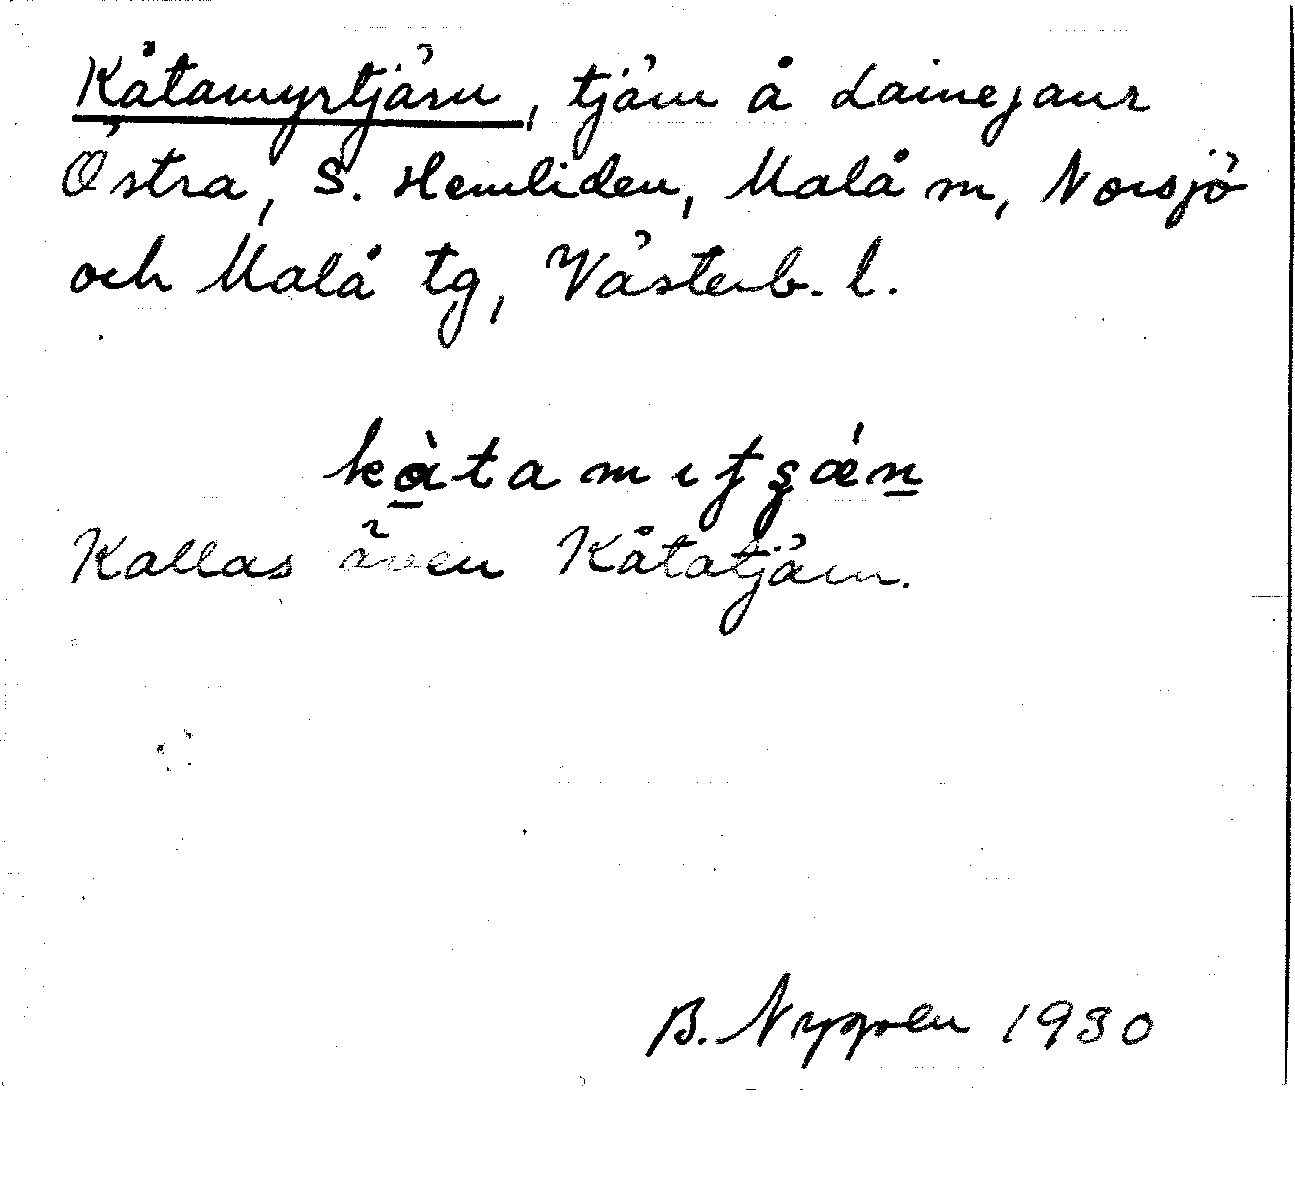 Kåtamyrtjärn, tjärn å Lainejaur
Östra, S. Hemliden, Malå sn, Norsjö
och Malå tg, Västerb. l.
kàtamıtʂǽn
Kallas även Kåtatjärn.
B. Nygren 1930